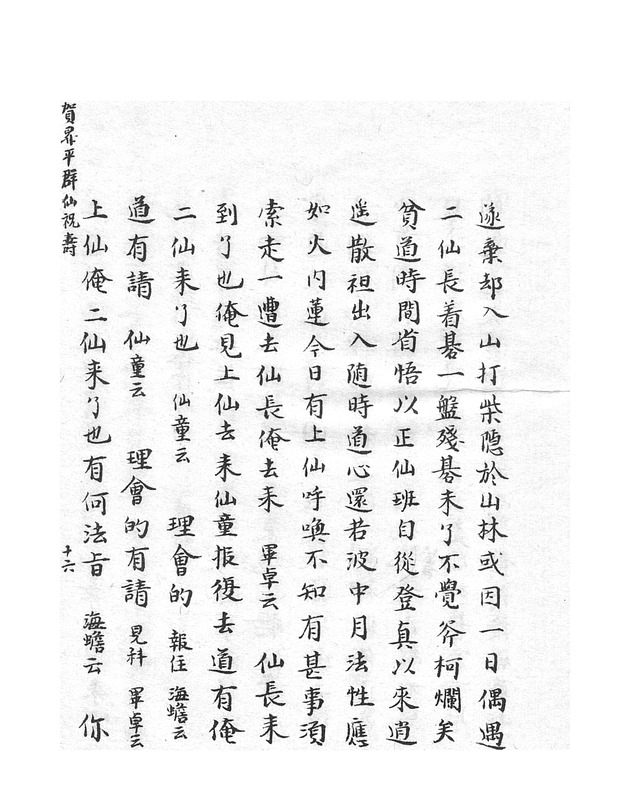 遂棄却入山打柴隐於山林或因一日偶遇
二仙長着碁一盤殘碁未了不覺斧柯爛矣
貧道時間省悟以正仙班自從登真以來逍
遥散袒出入随時道心還若波中月法性應
如火内蓮今日有上仙呼喚不知有甚事須
索走一遭去仙長俺去来 畢卓云 仙長来
到了也俺見上仙去来仙童報復去道有俺
二仙来了也 仙童云 理會的 報住 海蟾云
道有請 仙童云 理會的有請 見科 畢卓云
上仙俺二仙来了也有何法旨 海蟾云 你
賀昇平群仙祝壽
十六